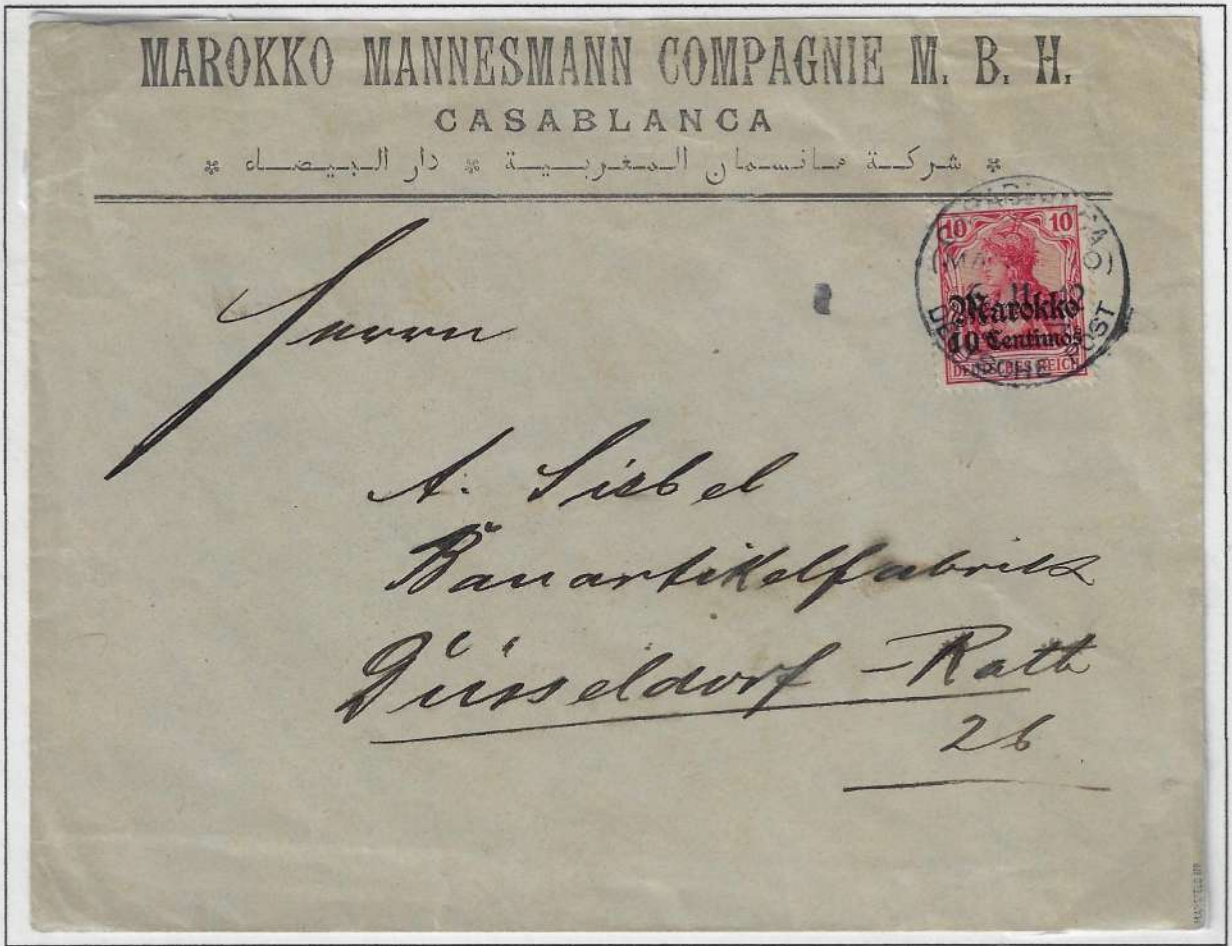 MAROKKO MANNESMANN COMPAGNIE M. B. H.
CASABLANCA
* شركة مانسمان المغربية * دار البيضاء *
10 10
Marokko
10 Centimos
DEUTSCHES REICH
DEUTSCHE POST
Herrn
A. Siebel
Bauartikelfabrik
Düsseldorf - Rath
26